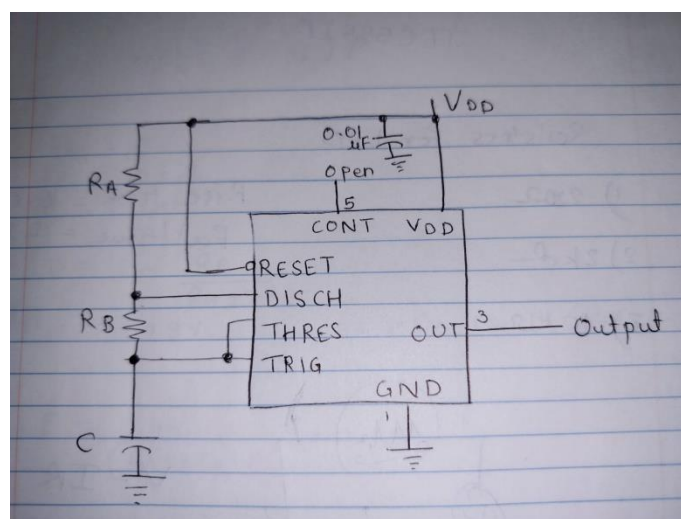 VDD
0.01
µF
RA
open
5
CONT VDD
RESET
DISCH
RB
THRES
OUT 3 Output
TRIG
GND
1
C